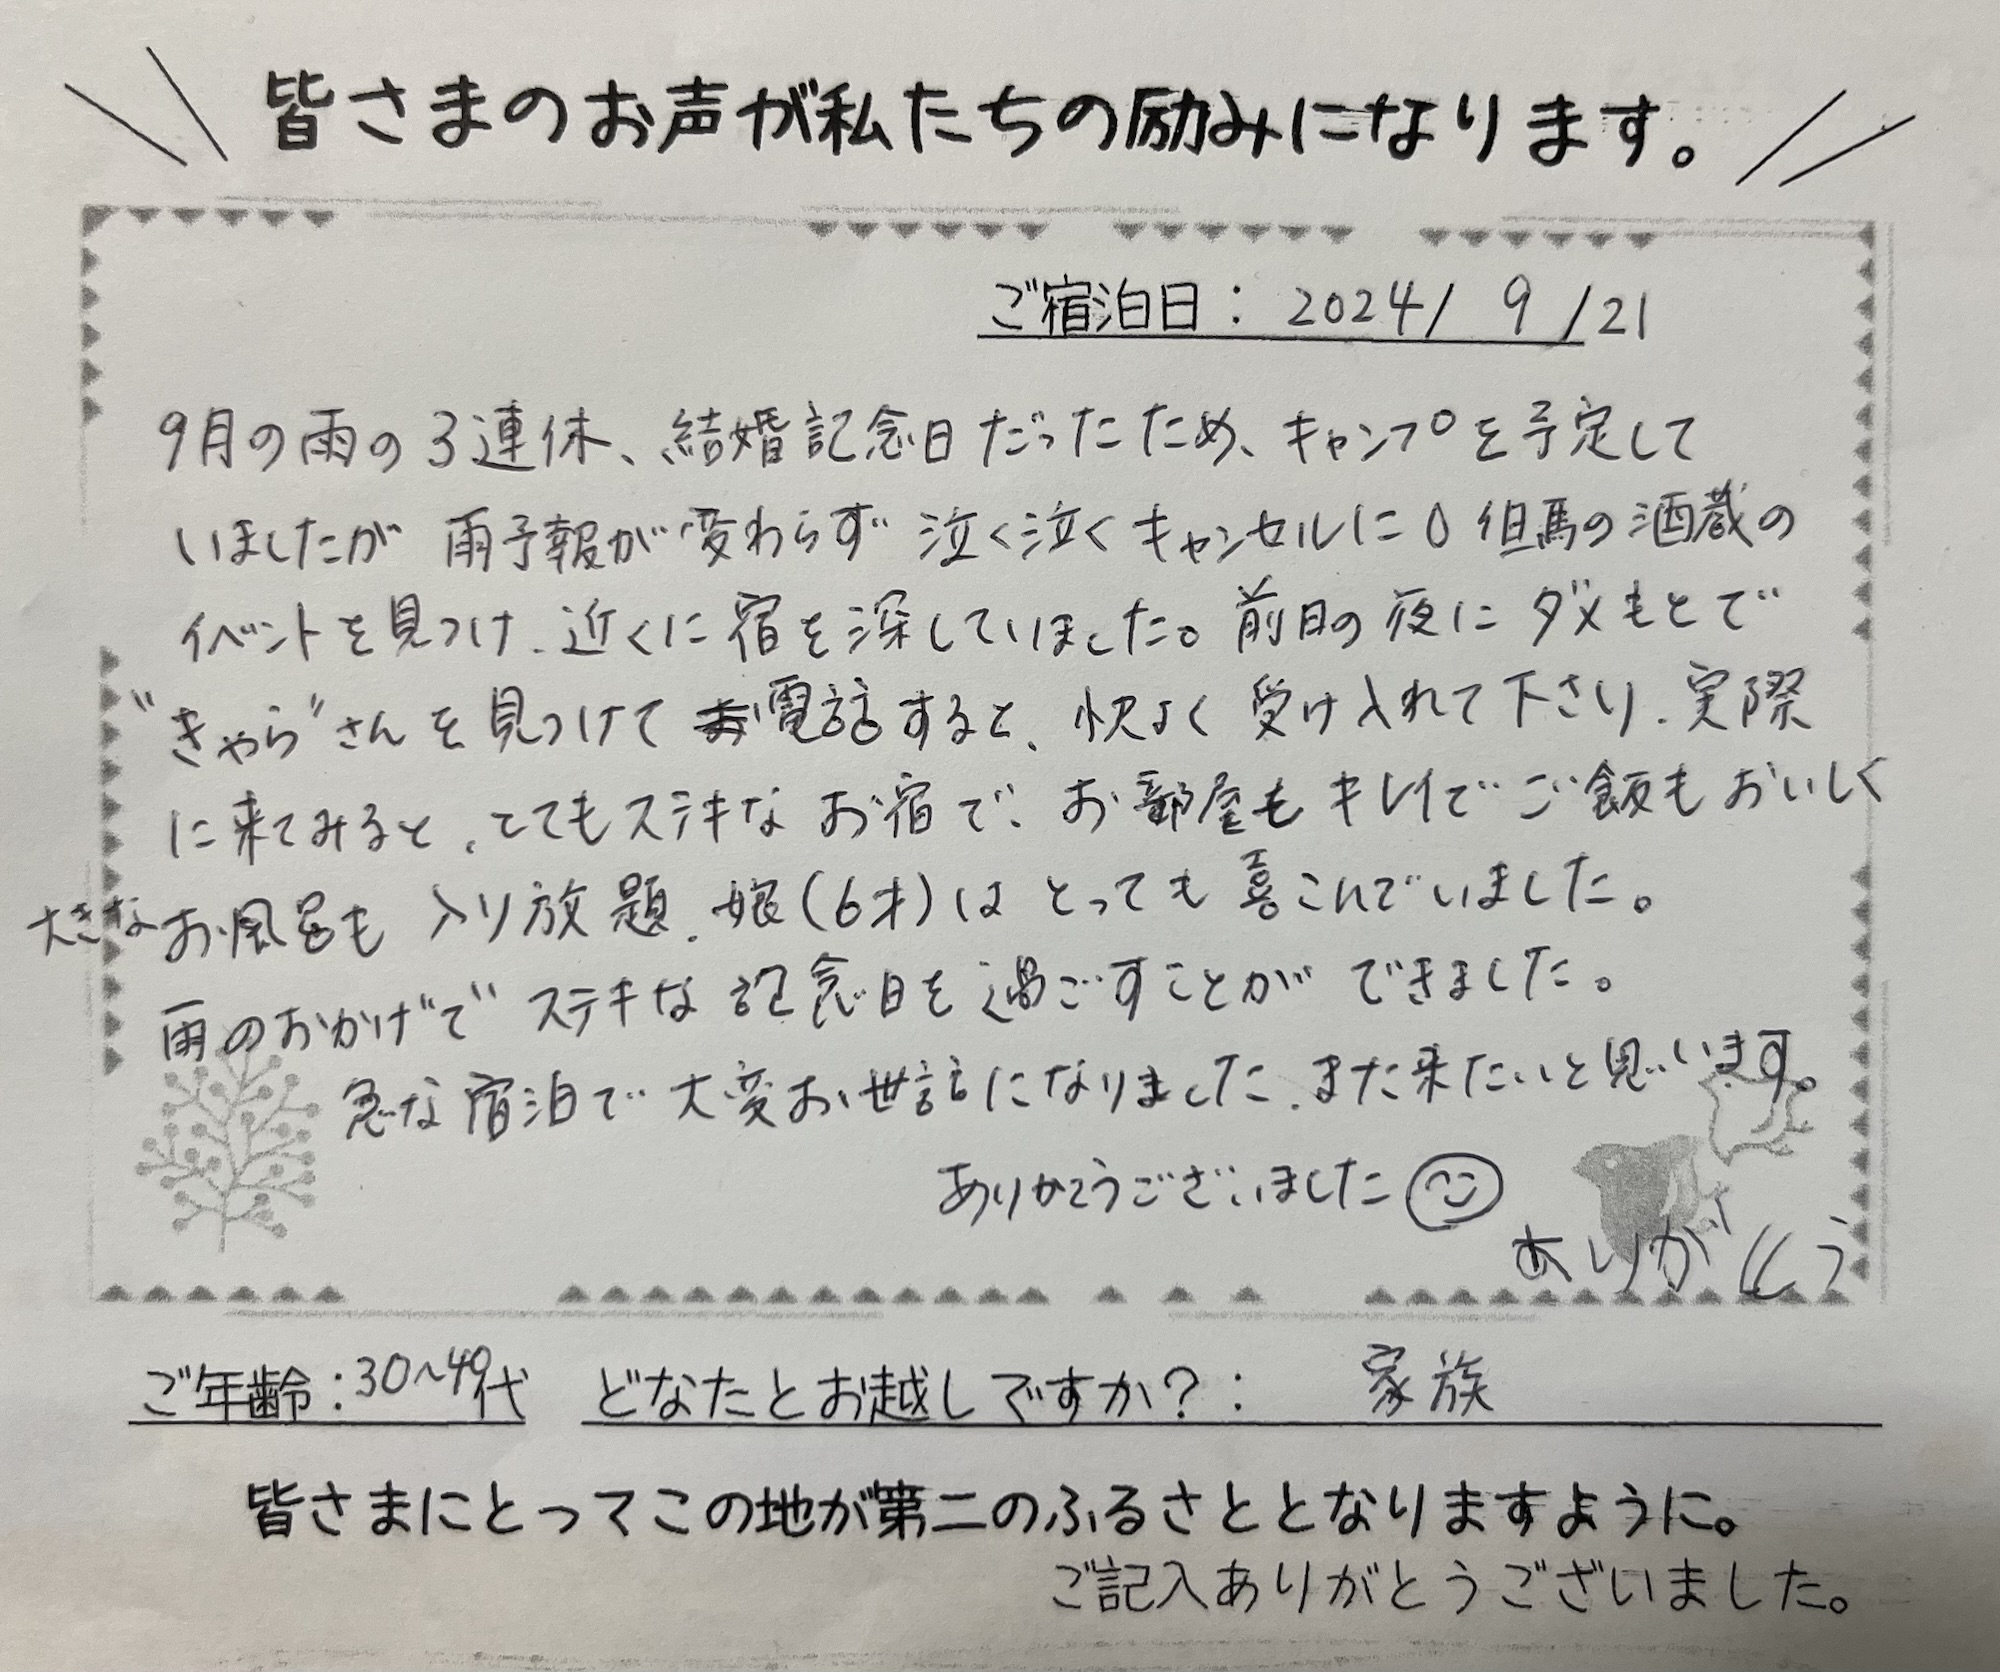 皆さまのお声が私たちの励みになります。
ご宿泊日：2024/ 9 /21
9月の雨の3連休、結婚記念日だったため、キャンプを予定して
いましたが 雨予報が変わらず 泣く泣くキャンセルに。但馬の酒蔵の
イベントを見つけ、近くに宿を深していました。前日の夜にダメもとで
"きゃら"さんを見つけて お電話すると、快よく受け入れて下さり、実際
に来てみると、とてもステキなお宿で、お部屋もキレイでご飯もおいしく
大きなお風呂も 入り放題、娘(6才)はとっても喜こんでいました。
雨のおかげで ステキな記念日を過ごすことができました。
急な宿泊で大変お世話になりました、また来たいと思います。
ありがとうございました
ありがとう
ご年齢：30〜40代 どなたとお越しですか？： 家族
皆さまにとってこの地が第二のふるさととなりますように。
ご記入ありがとうございました。